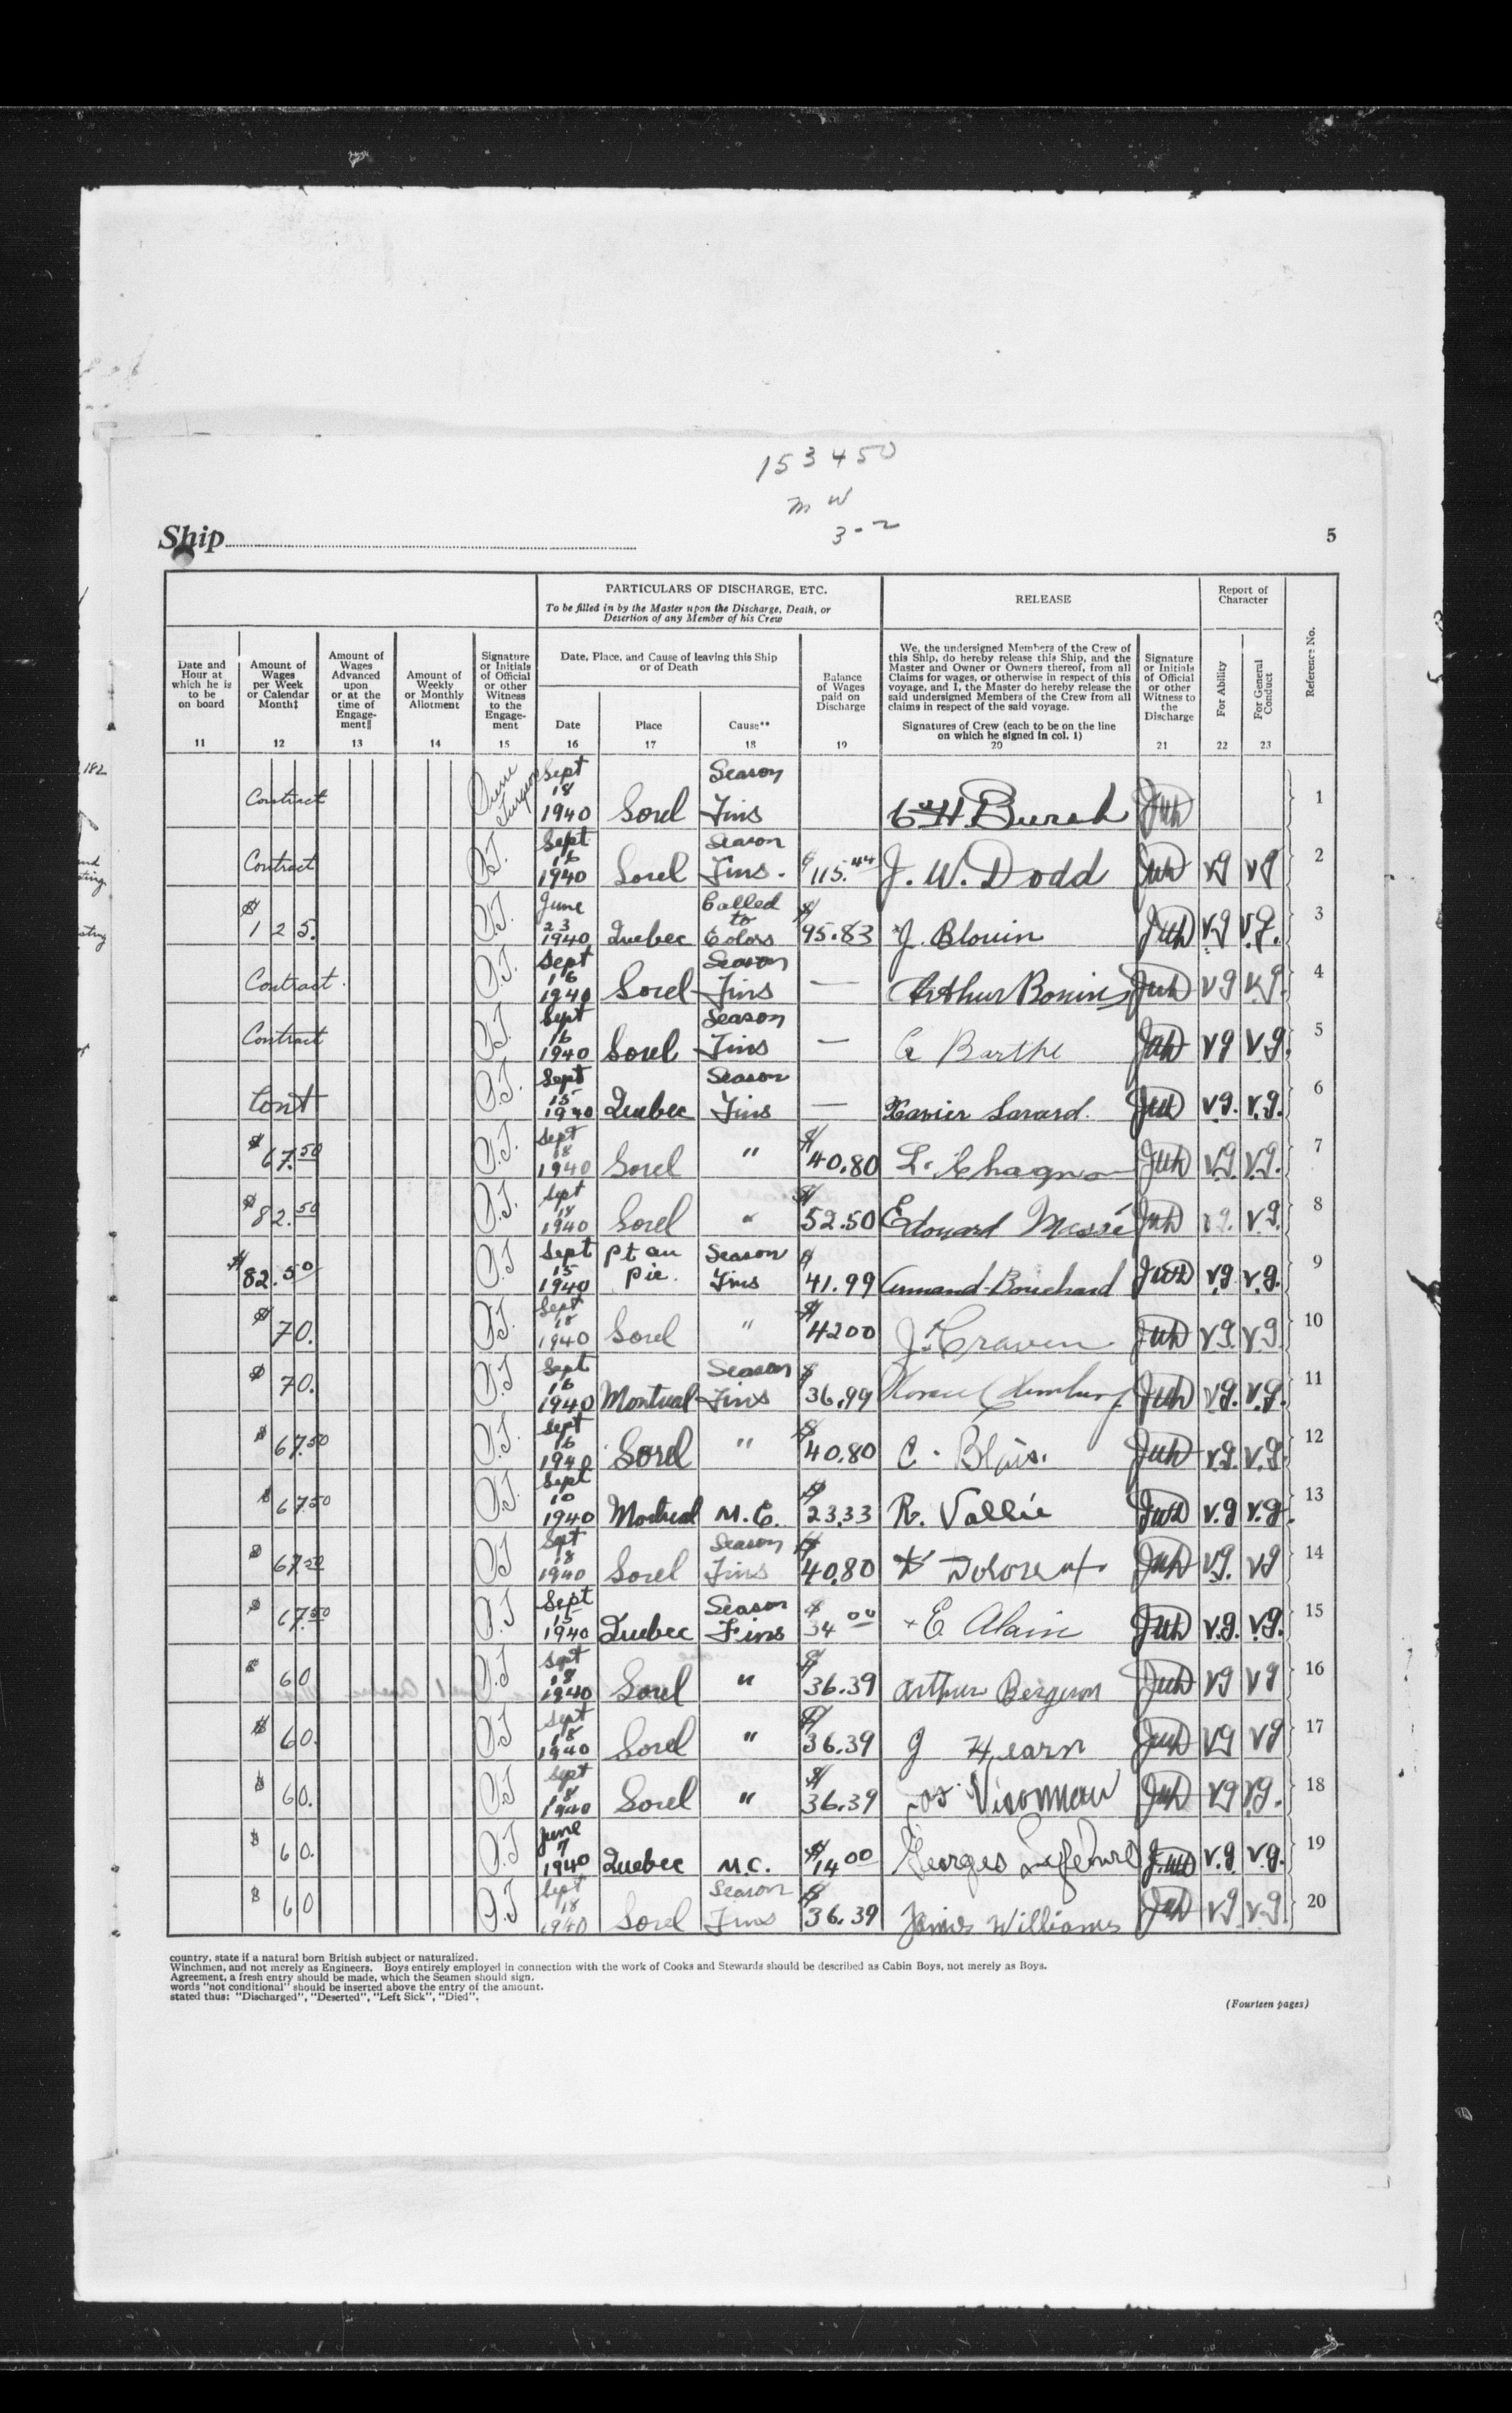 153450
m w
3-2
Ship
5
PARTICULARS OF DISCHARGE, ETC.
To be filled in by the Master upon the Discharge, Death, or
Desertion of any Member of his Crew
RELEASE
Report of
Character
Reference No.
Date and
Hour at
which he is
to be
on board
11
Amount of
Wages
per Week
or Calendar
Month‡
12
Amount of
Wages
Advanced
upon
or at the
time of
Engage-
ment‖
13
Amount of
Weekly
or Monthly
Allotment
14
Signature
or Initials
of Official
or other
Witness
to the
Engage-
ment
15
Date, Place, and Cause of leaving this Ship
or of Death
Date
16
Place
17
Cause**
18
Balance
of Wages
paid on
Discharge
19
We, the undersigned Members of the Crew of
this Ship, do hereby release this Ship, and the
Master and Owner or Owners thereof, from all
Claims for wages, or otherwise in respect of this
voyage, and I, the Master do hereby release the
said undersigned Members of the Crew from all
claims in respect of the said voyage.
Signatures of Crew (each to be on the line
on which he signed in col. 1)
20
Signature
or Initials
of Official
or other
Witness to
the
Discharge
21
For Ability
22
For General
Conduct
23
Contract Sept 18 1940 Sorel Season Finis Burch 1
Contract O.T. Sept 16 1940 Sorel Season Finis. $115.44 J. W. Dodd JWD vg vg 2
$125. O.T. June 23 1940 Quebec Called to Colors $95.83 J. Blouin JWD vg v.g. 3
Contract. O.T. Sept 16 1940 Sorel Season Finis — Arthur Bonin JWD vg v.g. 4
Contract O.T. Sept 16 1940 Sorel Season Finis — Barthe JWD vg v.g. 5
Cont O.T. Sept 15 1940 Quebec Season Finis — Xavier Savard. JWD v.g. v.g. 6
$67.50 O.T. Sept 18 1940 Sorel " $40.80 L. Chagno JWD v.g. v.g. 7
$82.50 O.T. Sept 18 1940 Sorel " $52.50 Edouard Massé JWD v.g. v.g. 8
$82.50 O.T. Sept 15 1940 Pt au Pic. Season Finis $41.99 Armand Bouchard JWD v.g. v.g. 9
$70. O.T. Sept 18 1940 Sorel " $42 00 J. Craven JWD v.g. v.g. 10
$70. O.T. Sept 16 1940 Montreal Season Finis $36.99 JWD v.g. v.g. 11
$67.50 O.T. Sept 16 1940 Sorel " $40.80 C. Blais. JWD v.g. v.g. 12
$67.50 O.T. Sept 10 1940 Montreal M.C. $23.33 R. Vallie JWD v.g. v.g. 13
$67.50 O.T. Sept 18 1940 Sorel Season Finis $40.80 JWD v.g. vg 14
$67.50 O.T. Sept 15 1940 Quebec Season Finis $34 00 E Alain JWD v.g. v.g. 15
$60 O.T. Sept 18 1940 Sorel " $36.39 Arthur Bergeron JWD vg vg 16
$60. O.T. Sept 18 1940 Sorel " $36.39 J Hearn JWD vg vg 17
$60. O.T. Sept 18 1940 Sorel " $36.39 JWD vg v.g. 18
$60. O.T. June 7 1940 Quebec M.C. $14 00 Georges Lefebvre JWD v.g. v.g. 19
$60 O.T. Sept 18 1940 Sorel Season Finis $36.39 James Williams JWD vg v.g. 20
country, state if a natural born British subject or naturalized.
Winchmen, and not merely as Engineers. Boys entirely employed in connection with the work of Cooks and Stewards should be described as Cabin Boys, not merely as Boys.
Agreement, a fresh entry should be made, which the Seamen should sign.
words "not conditional" should be inserted above the entry of the amount.
stated thus: "Discharged", "Deserted", "Left Sick", "Died".
(Fourteen pages)